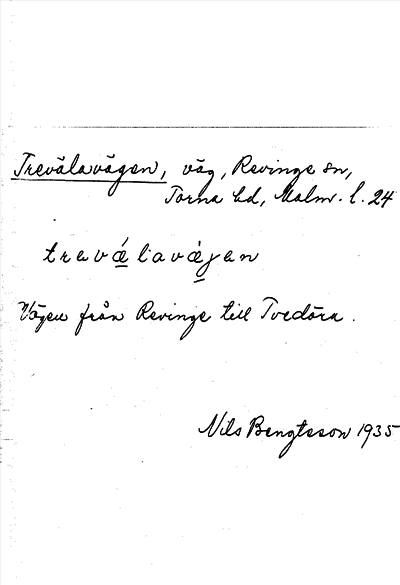 Trevälavägen, väg, Revinge sn,
Torna hd, Malm. l. 24
trevǽlavǽgen
Vägen från Revinge till Tvedöra.
Nils Bengtsson 1935